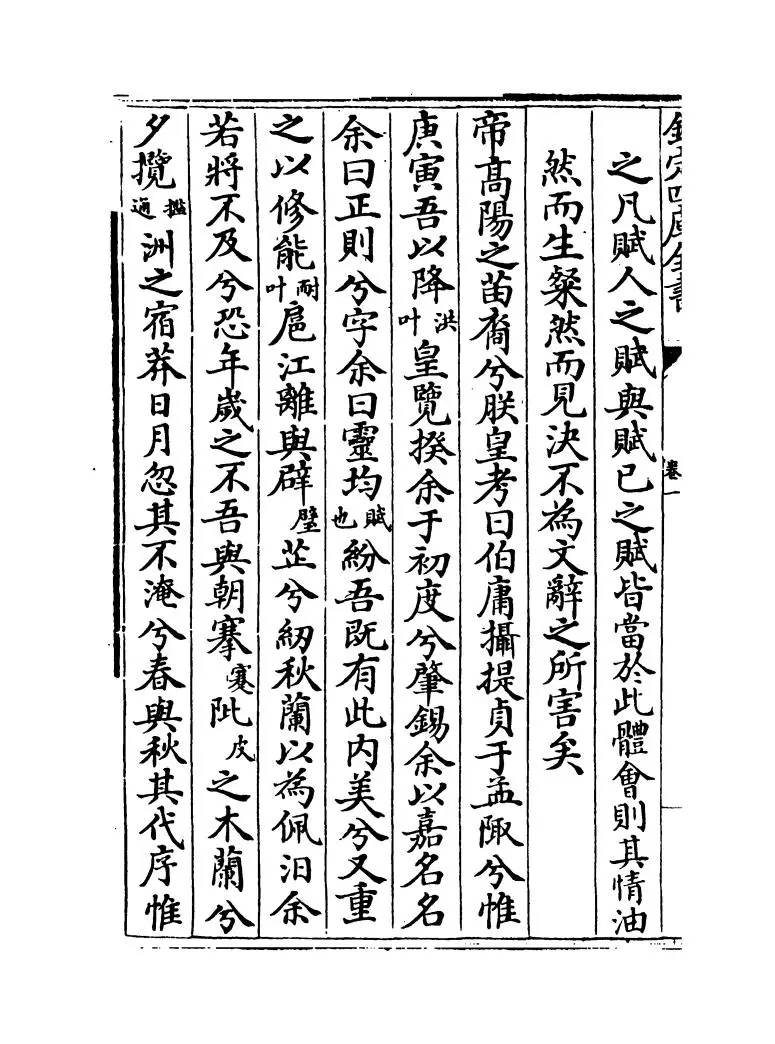 欽定四庫全書
卷一
之凡賦人之賦與賦已之賦皆當於此體會則其情油
然而生粲然而見決不為文辭之所害矣
帝高陽之苗裔兮朕皇考曰伯庸攝提貞于孟陬兮惟
庚寅吾以降洪叶皇覽揆余于初度兮肇錫余以嘉名名
余曰正則兮字余曰靈均賦也紛吾既有此内美兮又重
之以修能耐叶扈江離與辟璧芷兮紉秋蘭以為佩汨余
若將不及兮恐年歲之不吾與朝搴蹇阰皮之木蘭兮
夕攬洲之宿莽日月忽其不淹兮春與秋其代序惟